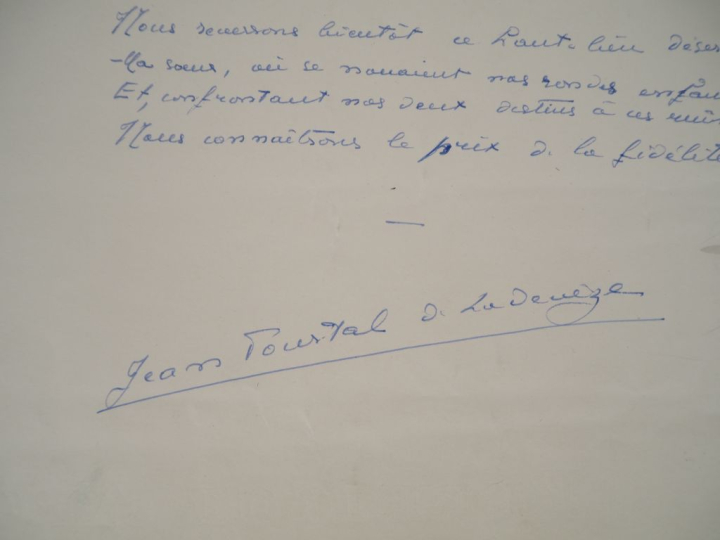 Nous reverrons bientôt ce haut-lieu déser
Ma sœur, où se nouaient nos rondes enfan
Et, confrontant nos deux destins à ces ruin
Nous connaîtrons le prix de la fidélité
—
Jean Tourtal de Ladevèze